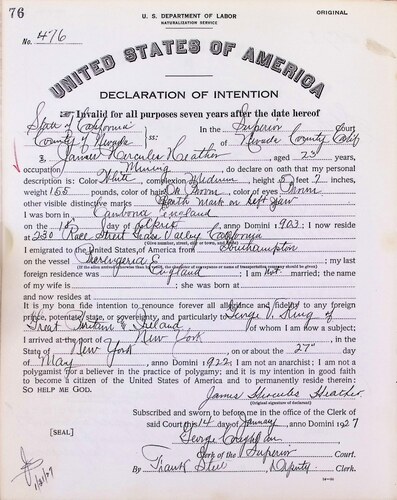 76
U. S. DEPARTMENT OF LABOR
NATURALIZATION SERVICE
ORIGINAL
No. 476
UNITED STATES OF AMERICA
DECLARATION OF INTENTION
Invalid for all purposes seven years after the date hereof
State of California
In the Superior Court
County of Nevada ss: of Nevada County Calif
I, James Hercules Heather, aged 23 years,
occupation Mining, do declare on oath that my personal
description is: Color White, complexion Medium, height 5 feet 7 inches,
weight 155 pounds, color of hair Dk Brown, color of eyes Brown
other visible distinctive marks Birth Mark on left Jaw
I was born in England
on the 18 day of, anno Domini 1903; I now reside
at 230 Race Street Grass Valley California
(Give number, street, city or town, and State.)
I emigrated to the United States of America from Southampton
on the vessel; my last
(If the alien arrived otherwise than by vessel, the character of conveyance or name of transportation company should be given.)
foreign residence was England; I am not married; the name
of my wife is; she was born at
and now resides at
It is my bona fide intention to renounce forever all allegiance and fidelity to any foreign
prince, potentate, state, or sovereignty, and particularly to George V. King of
Great Britain & Ireland of whom I am now a subject;
I arrived at the port of New York, in the
State of New York, on or about the 27th day
of May, anno Domini 1922; I am not an anarchist; I am not a
polygamist nor a believer in the practice of polygamy; and it is my intention in good faith
to become a citizen of the United States of America and to permanently reside therein:
SO HELP ME GOD.
James Hercules Heather
(Original signature of declarant.)
Subscribed and sworn to before me in the office of the Clerk of
said Court this 14 day of January, anno Domini 1927
[SEAL]
George
Clerk of the Superior Court.
By Frank Steel, Deputy Clerk.